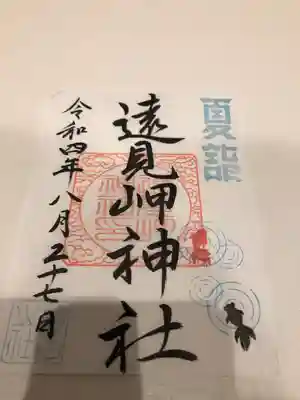 夏詣
遠見岬神社
令和四年八月二十七日